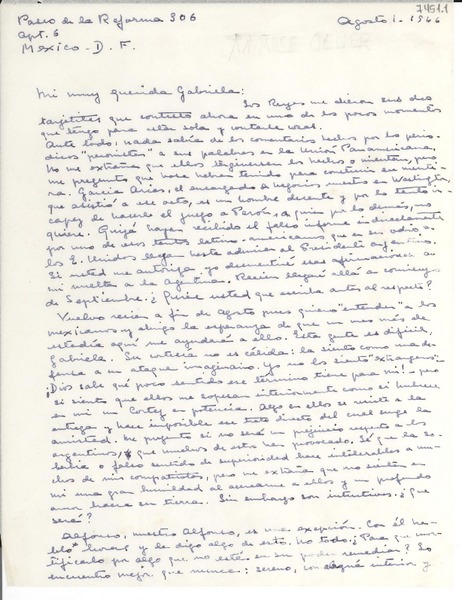 74511
Paseo de la Reforma 306
Agosto 1 - 1946
Apt. 6
Mexico - D. F.
Mi muy querida Gabriela:
Los Reyes me dieron sus dos
tarjetitas que contesto ahora en uno de los pocos momentos
que tengo para estar sola y contarle
Ante todo, nada sabía de los comentarios hechos por los perió-
dicos "peronistas" a sus palabras en la Unión Panamericana.
No me extraña que ellos tergiversen los hechos o mientan, pero
me pregunto qué base habrán tenido para construir su menti-
ra. García Arias, el encargado de negocios nuestro en Washington,
que asistió a ese acto, es un hombre decente y por lo tanto in-
capaz de hacerle el juego a Perón, a quien por lo demás, no
quiere. Quizá hayan recibido el falso informe indirectamente
por uno de esos tantos latino-americanos que en su odio a
los E. Unidos llegan hasta admirar al Presidente argentino.
Si usted me autoriza yo desmentiré esas afirmaciones a
mi vuelta a la Argentina. Recién llegaré allá a comienzos
de Septiembre. ¿Quiere usted que escriba antes al respecto?
Vuelvo recién a fin de Agosto pues quiero "entender" a los
mexicanos y abrigo la esperanza de que un mes más de
estadía aquí me ayudará a ello. Esta gente es difícil,
Gabriela. Su cortesía no es cálida: la siento como una de-
fensa a un ataque imaginario. Yo no los siento "extranjeros"
¡Dios sabe qué poco sentido ese término tiene para mí! - pero
sí siento que ellos me esperan interiormente como si hubiese
en mí un Cortez en potencia. Algo en ellos se resiste a la
entrega y hace imposible ese trato directo del cual surge la
amistad. Me pregunto si no será un prejuicio respecto a los
argentinos, que muchos de estos han provocado. Sé que la so-
berbia o falso sentido de superioridad hace intolerables a mu-
chos de mis compatriotas, pero me extraña que no sientan en
mí una gran humildad al acercarme a ellos y un profundo
amor hacia su tierra. Sin embargo son intuitivos. ¿Qué
será?
Alfonso, nuestro Alfonso, es una excepción. Con él ha-
blo horas y le digo algo de esto. No todo. ¿Para qué mor-
tificarlo por algo que no está en su poder remediar? Lo
encuentro mejor que nunca: sereno, con interior y